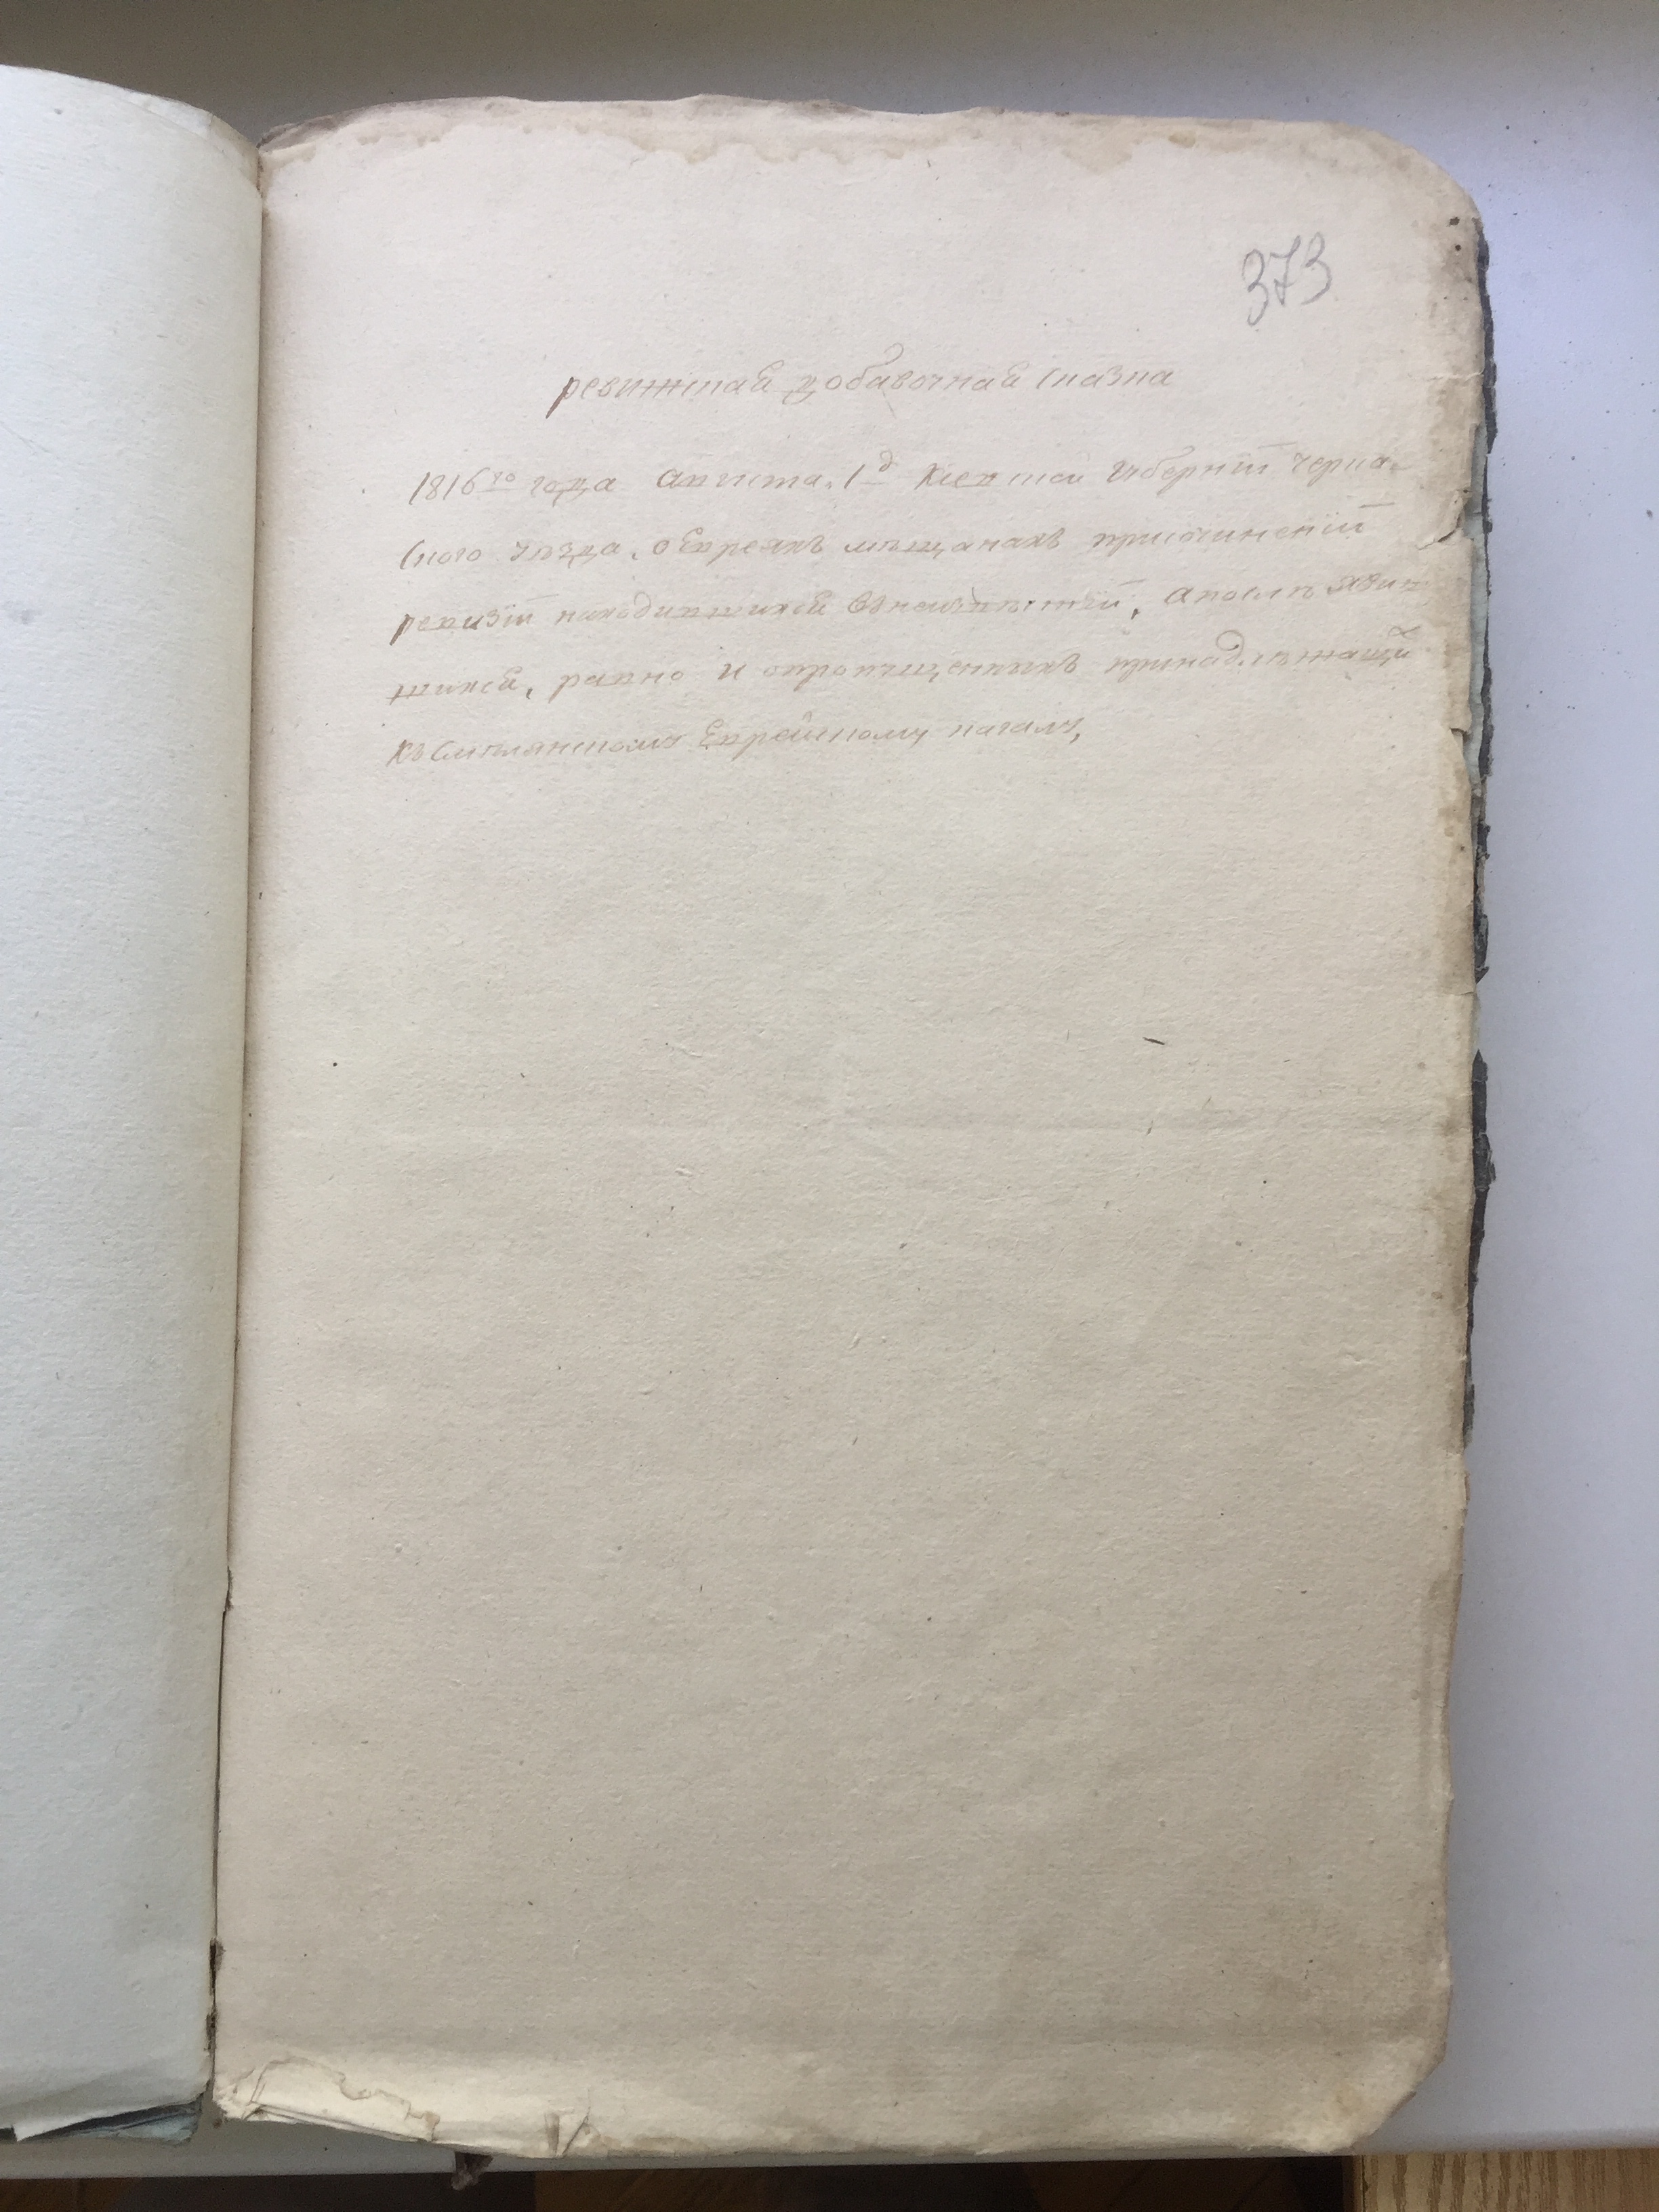 373
ревижская добавочная сказка
1816го года Августа 1д Киевской Губернiи Черка-
ского уезда, о Евреяхъ мещанахъ при сочиненiи
ревизiи находившихся въ неизвестнiи, а после явив
шихся, равно и о пропущенныхъ принадлежащи
къ Смелянскому Еврейскому кагалу,